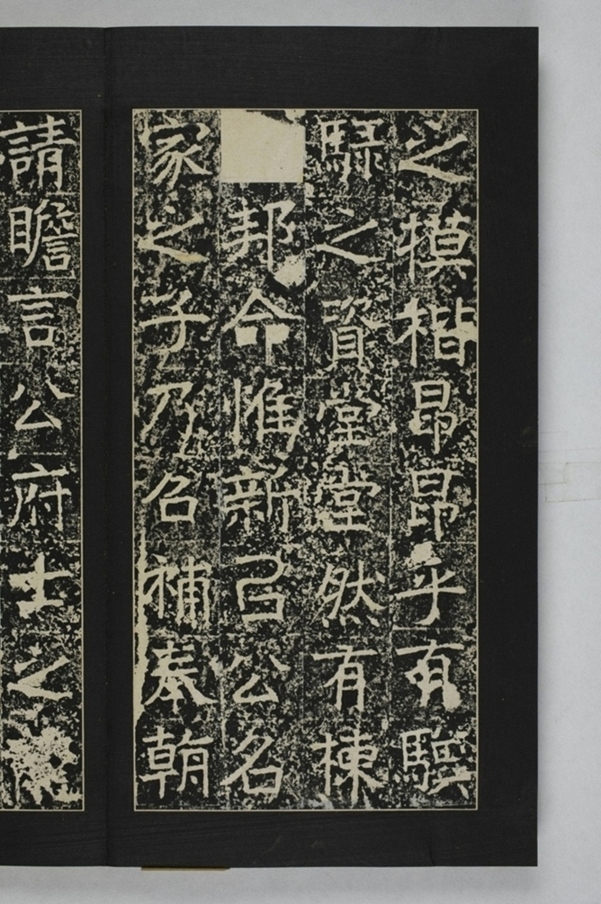 之模楷昂昂乎有驥
騄之資堂堂然有棟
邦命惟新召公名
家之子乃召補奉朝
請瞻言公府士之